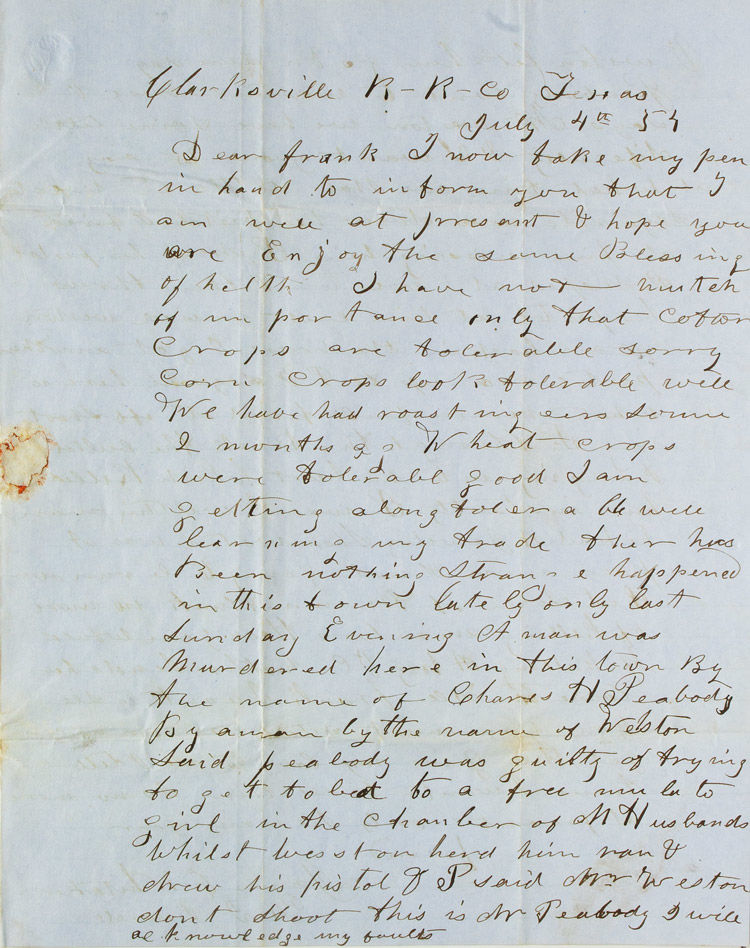 Clarksville R-R-Co Texas
July 4th 57
Dear frank I now take my pen
in hand to inform you that I
am well at present & hope you
are Enjoy the same Blessing
of helth I have not mutch
of importance only that Cotton
Crops are tolerable sorry
Corn Crops look tolerable well
We have had roasting eers some
2 months go Wheat crops
were tolerabl good I am
getting along tolerable well
learning my trade ther has
Been nothing Strange happened
in this town lately only last
Sunday Evening A man was
Murdered here in this town By
the name of Charls H Peabody
By a man by the name of Weston
Said peabody was guilty of trying
to get to bed to a free mulato
girl in the Chamber of M Husbands
Whilst Wesston herd him ran &
drew his pistol & P said Mr Weston
dont shoot this is Mr Peabody I will
acknowledge my faults